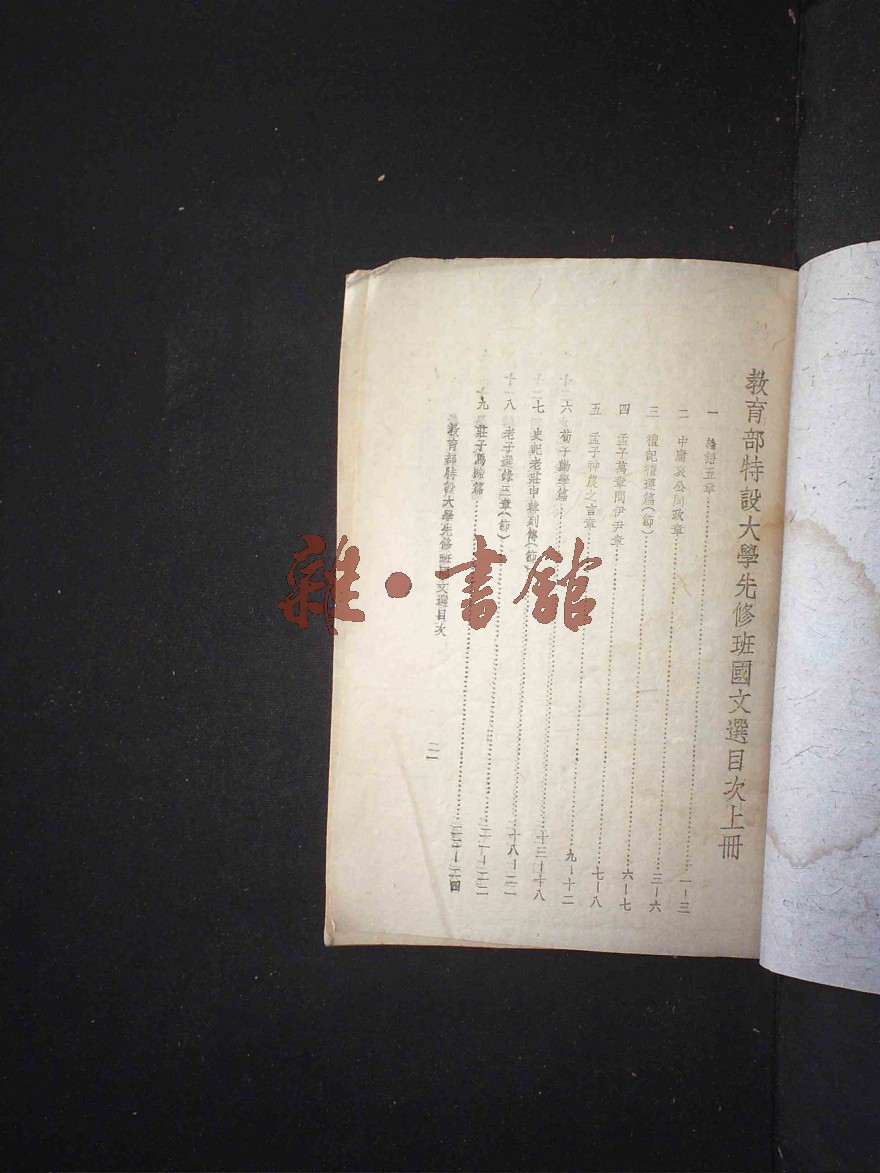 教育部特設大學先修班國文選目次上冊
一 論語五章 一－三
二 中庸哀公問政章 三－六
三 禮記禮運篇(節) 六－七
四 孟子萬章問伊尹章 七－八
五 孟子神農之言章
六 荀子勸學篇 九－十二
七 史記老莊申韓列傳(節) 十三－十八
八 老子選錄三章(節)
九 莊子馬蹄篇
教育部特設大學先修班國文選目次
雜・書館